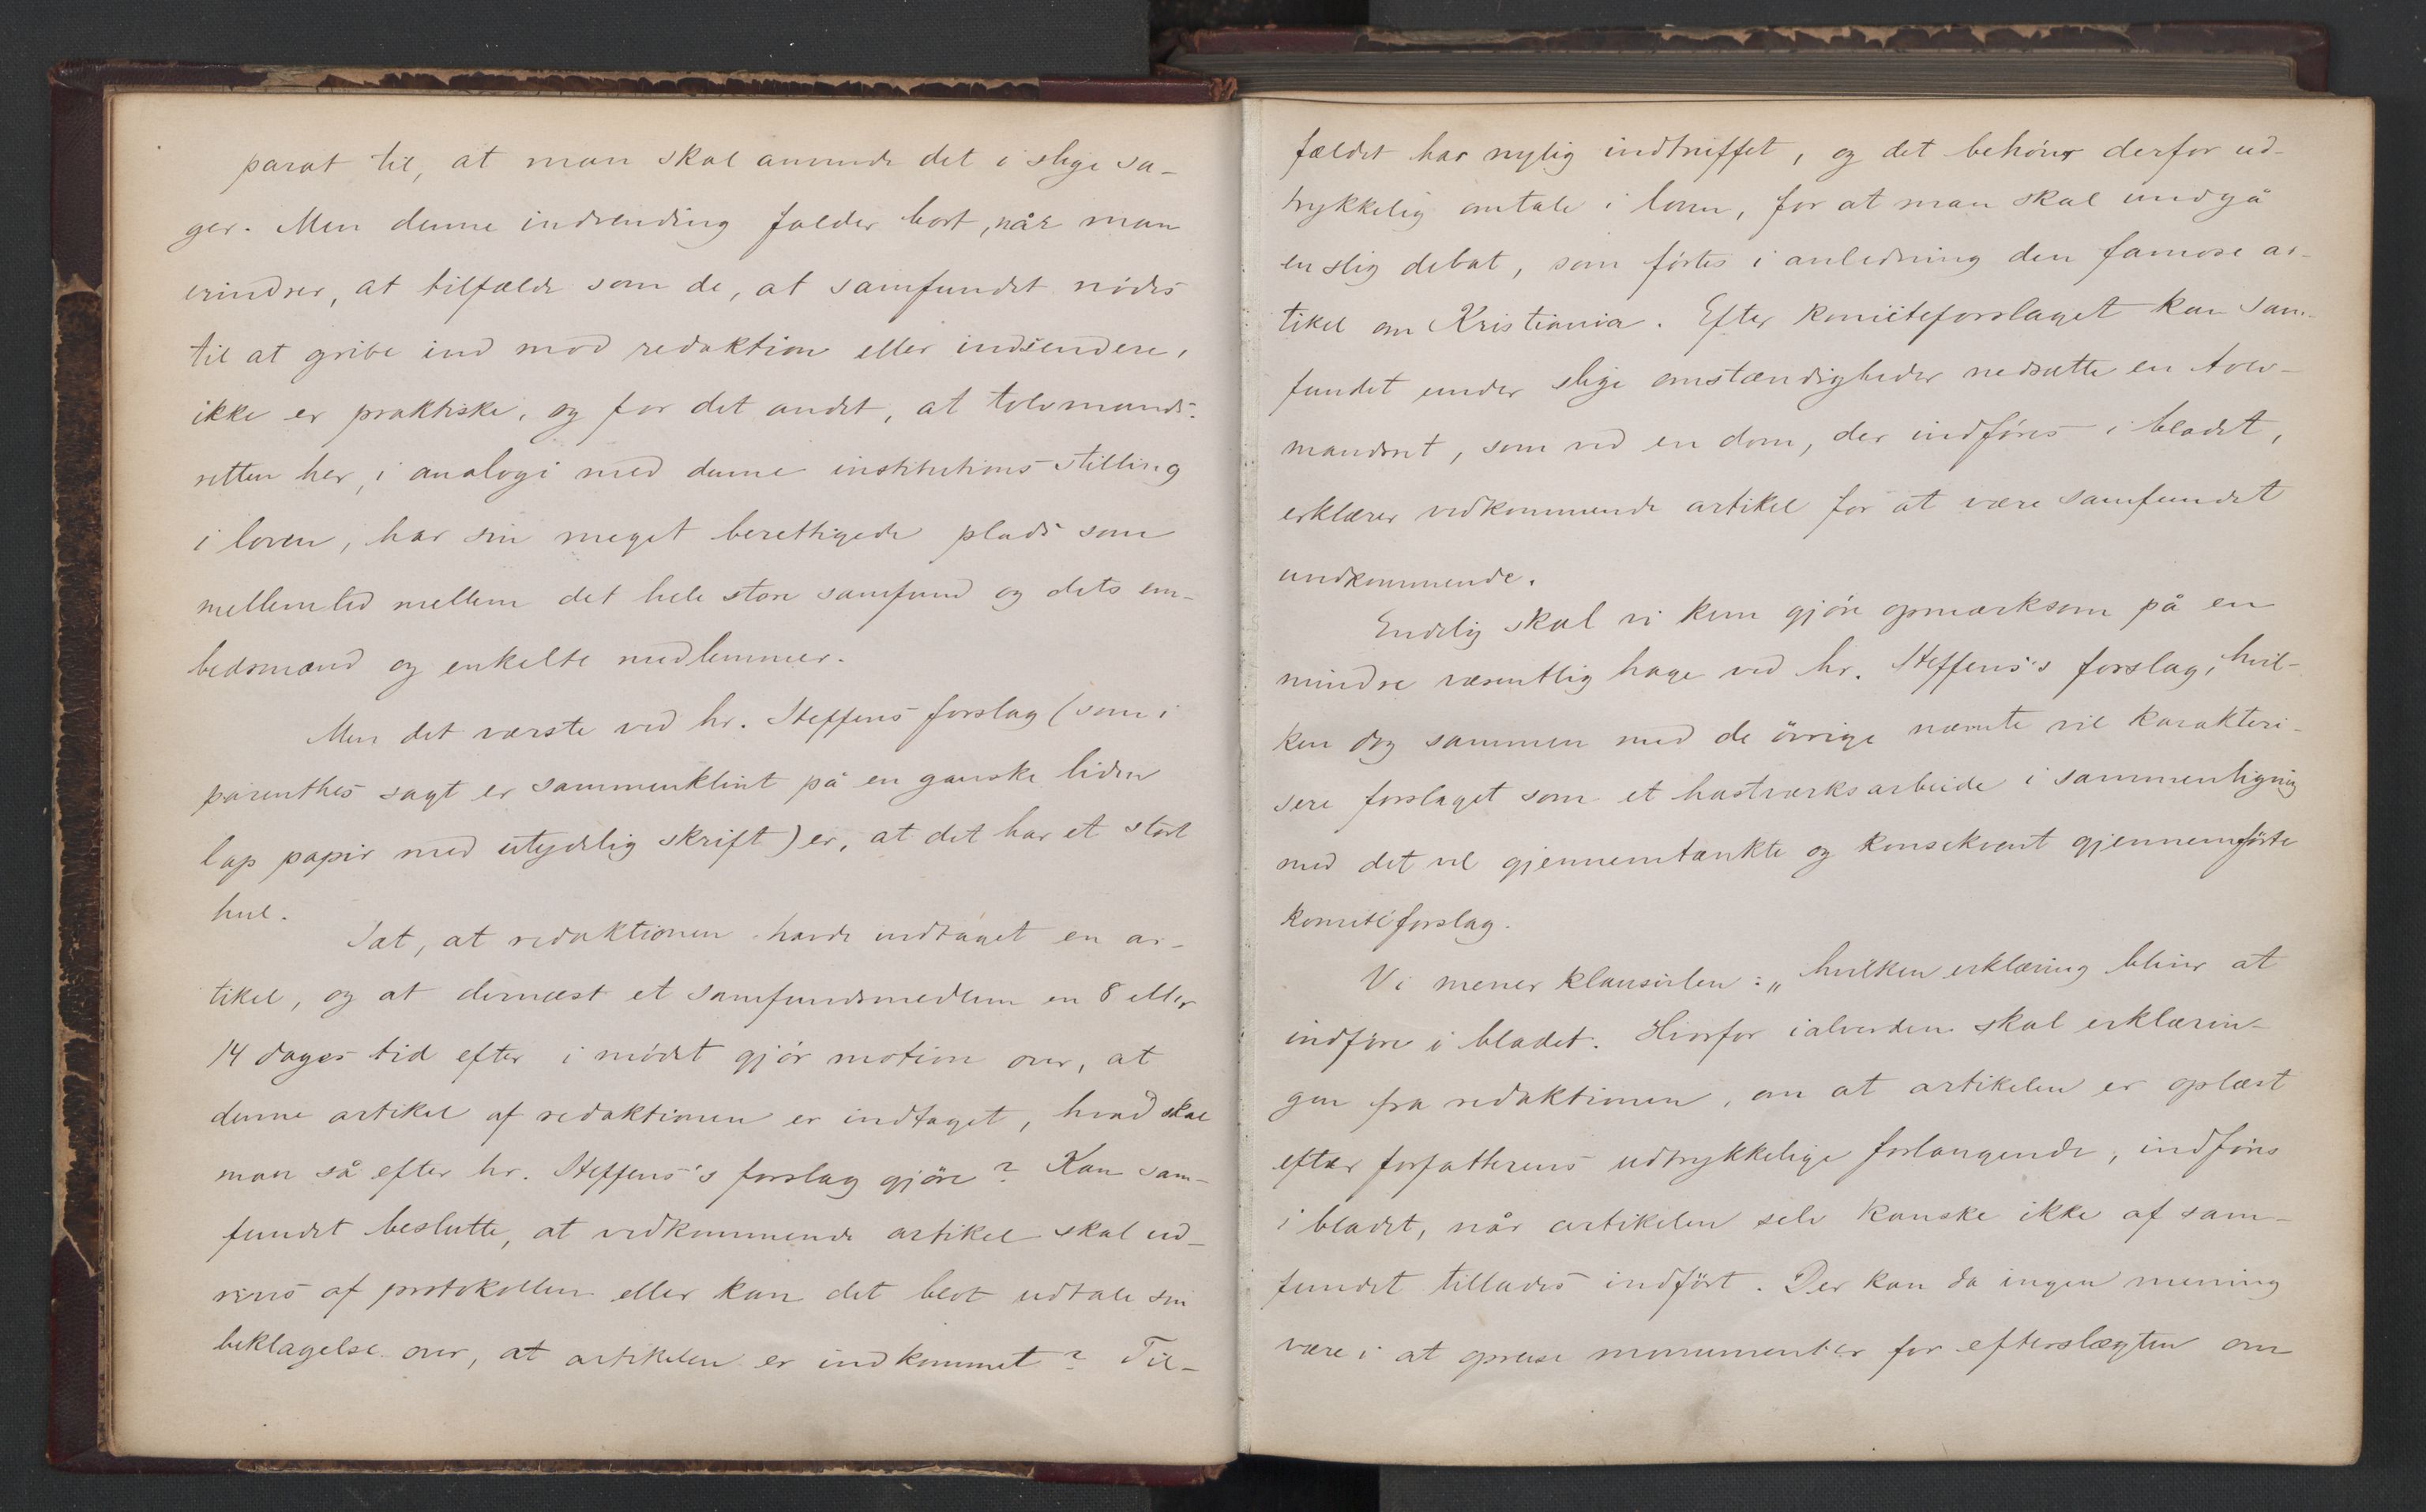 parat til, at man skal anvende det i slige sa-
ger. Men denne indvending falder bort, når man
erindrer, at tilfælde som de, at samfundet nødes
til at gribe ind mod redaktion eller indsendere,
ikke er praktiske, og for det andet, at tolvmands-
retten her, i analogi med denne institutions stilling
i loven, har sin meget berettigede plads som
mellemled mellem det hele store samfund og dets em-
bedsmænd og enkelte medlemmer.
Men det værste ved hr. Steffens forslag (som i
parenthes sagt er sammenklint på en ganske liden
lap papir med utydelig skrift) er, at det har et stort
hul.
Sæt, at redaktionen havde indtaget en ar-
tikel, og at dernæst et samfundsmedlem en 8 eller
14 dages tid efter i mødet gjör motion over, at
denne artikel af redaktionen er indtaget, hvad skal
man så efter hr. Steffens's forslag gjöre? Kan sam-
fundet beslutte, at vedkommende artikel skal ud-
rives af protokollen eller kan det blot udtale sin
beklagelse over, at artikelen er indkommet? Til-
fældet har nylig indtruffet, og det behöver derfor ud-
trykkelig omtale i loven, for at man skal undgå
en slig debat, som førtes i anledning den famose ar-
tikel om Kristiania. Efter komiteforslaget kan sam-
fundet under slige omstændigheder nedsætte en tolv-
mandsret, som ved en dom, der indføres i bladet,
erklærer vedkommende artikel for at være samfundet
uvedkommende.
Endelig skal vi kun gjöre opmærksom på en
mindre væsentlig hage ved hr. Steffens's forslag, hvil-
ken dog sammen med de övrige nævnte vil karakteri-
sere forslaget som et hastværksarbeide i sammenligning
med det vel gjennemtænkte og konsekvent gjennemförte
komitéforslag.
Vi mener klausulen: „hvilken erklæring bliver at
indføre i bladet. Hvorfor ialverden skal erklærin-
gen fra redaktionen, om at artikelen er oplæst
efter forfatterens udtrykkelige forlangende, indføres
i bladet, når artikelen selv kanske ikke af sam-
fundet tillades indført. Der kan da ingen mening
være i at opreise monumenter for efterslægten om